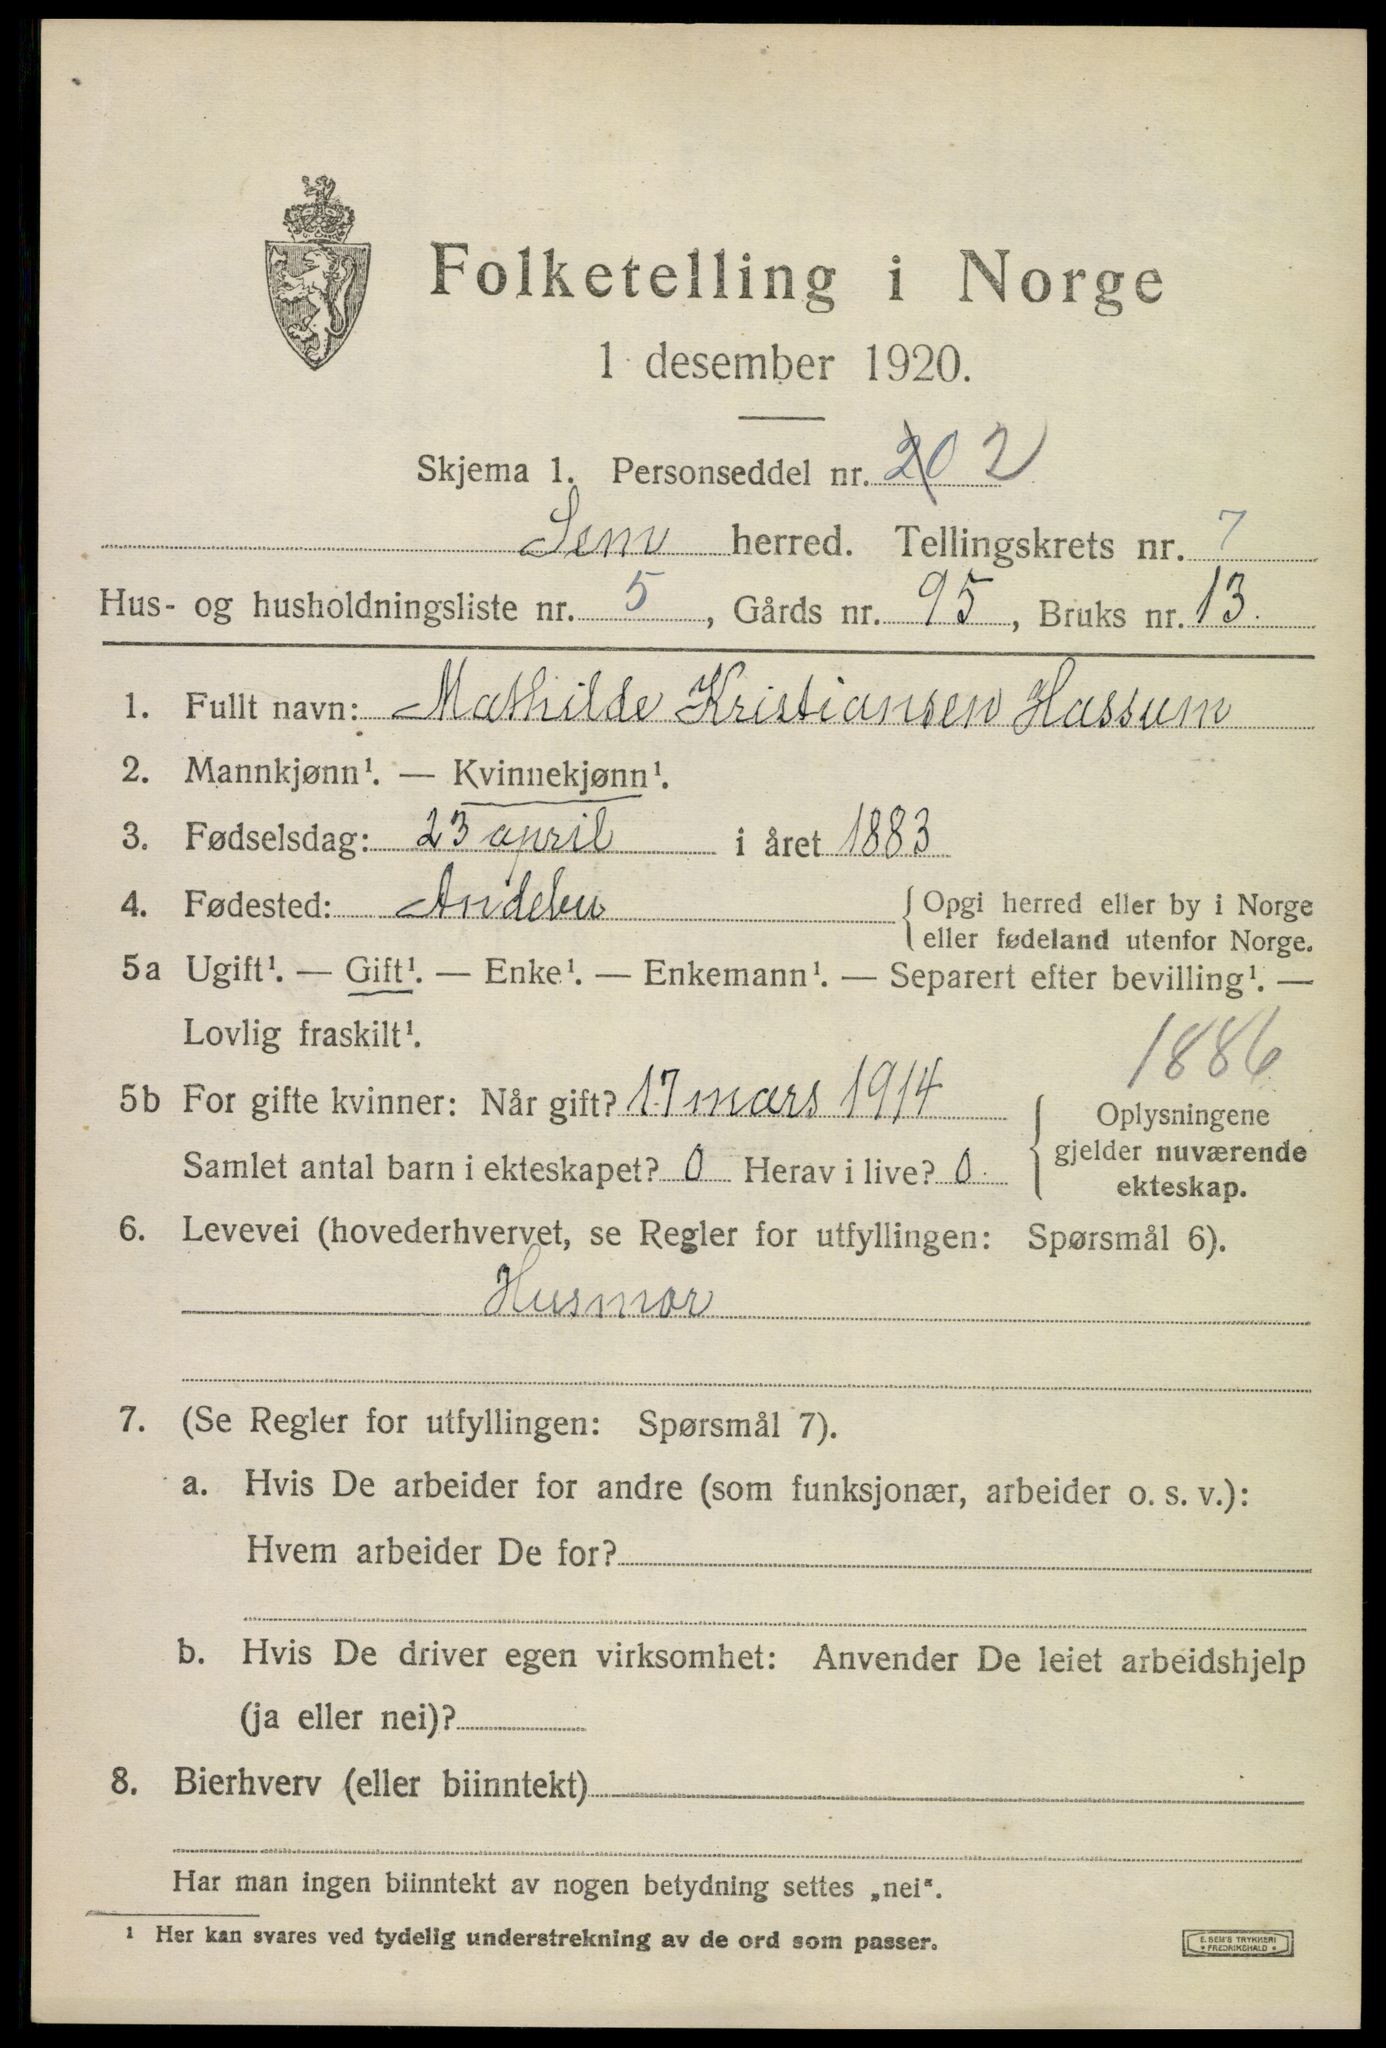 Folketelling i Norge
1 desember 1920.
Skjema 1. Personseddel nr. 20 2
Sem herred. Tellingskrets nr. 7
Hus- og husholdningsliste nr. 5, Gårds nr. 95, Bruks nr. 13.
1. Fullt navn: Mathilde Kristiansen Hassum
2. Mannkjønn¹. — Kvinnekjønn¹.
3. Fødselsdag: 23 april i året 1883
4. Fødested: Andebu { Opgi herred eller by i Norge
eller fødeland utenfor Norge.
5a Ugift¹. — Gift¹. — Enke¹. — Enkemann¹. — Separert efter bevilling¹. —
Lovlig fraskilt¹.
1886
5b For gifte kvinner: Når gift? 17 mars 1914 { Oplysningene
gjelder nuværende
ekteskap.
Samlet antal barn i ekteskapet? 0 Herav i live? 0
6. Levevei (hovederhvervet, se Regler for utfyllingen: Spørsmål 6).
Husmor
7. (Se Regler for utfyllingen: Spørsmål 7).
a. Hvis De arbeider for andre (som funksjonær, arbeider o. s. v.):
Hvem arbeider De for?
b. Hvis De driver egen virksomhet: Anvender De leiet arbeidshjelp
(ja eller nei)?
8. Bierhverv (eller biinntekt)
Har man ingen biinntekt av nogen betydning settes „nei".
¹ Her kan svares ved tydelig understrekning av de ord som passer.
E. SEM'S TRYKKERI
* FREDRIKSHALD *